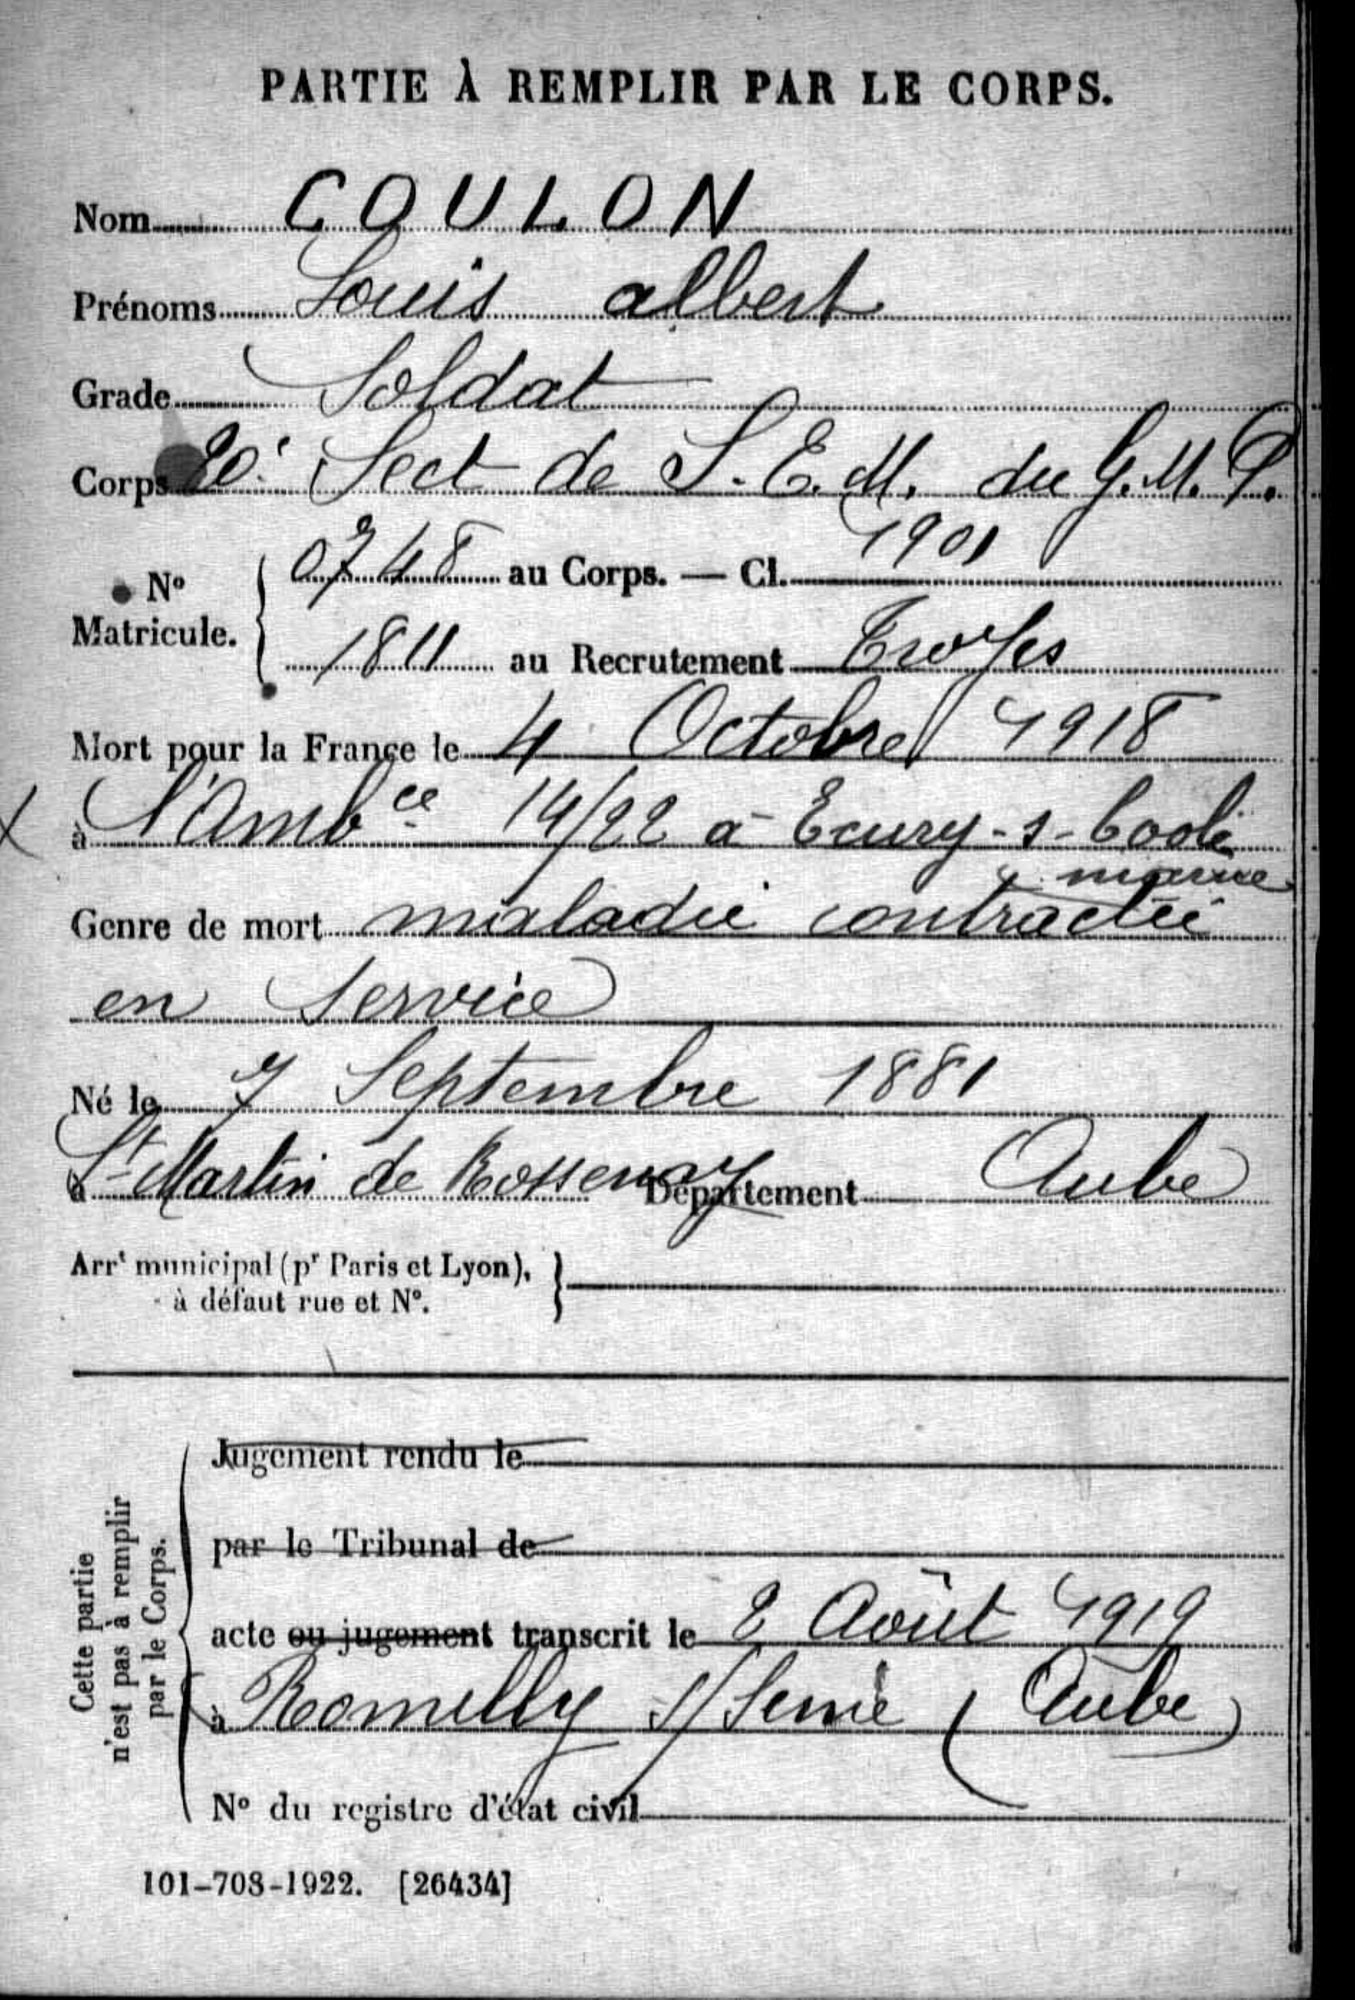 PARTIE À REMPLIR PAR LE CORPS.
Nom COULON
Prénoms Louis albert
Grade Soldat
Corps 20e Sect de S.E.M. du G.M.P.
No Matricule. 0748 au Corps. — Cl. 1901
1811 au Recrutement Troyes
Mort pour la France le 4 Octobre 1918
à l'Ambce 14/22 à Ecury-s-Coole
marne
Genre de mort maladie contractée
en Service
Né le 7 Septembre 1881
à St Martin de Bossenay Département Aube
Arrt municipal (pr Paris et Lyon),
à défaut rue et No.
Cette partie
n'est pas à remplir
par le Corps.
Jugement rendu le
par le Tribunal de
acte ou jugement transcrit le 2 Août 1919
à Romilly s/Seine (Aube)
No du registre d'état civil
101-708-1922. [26434]